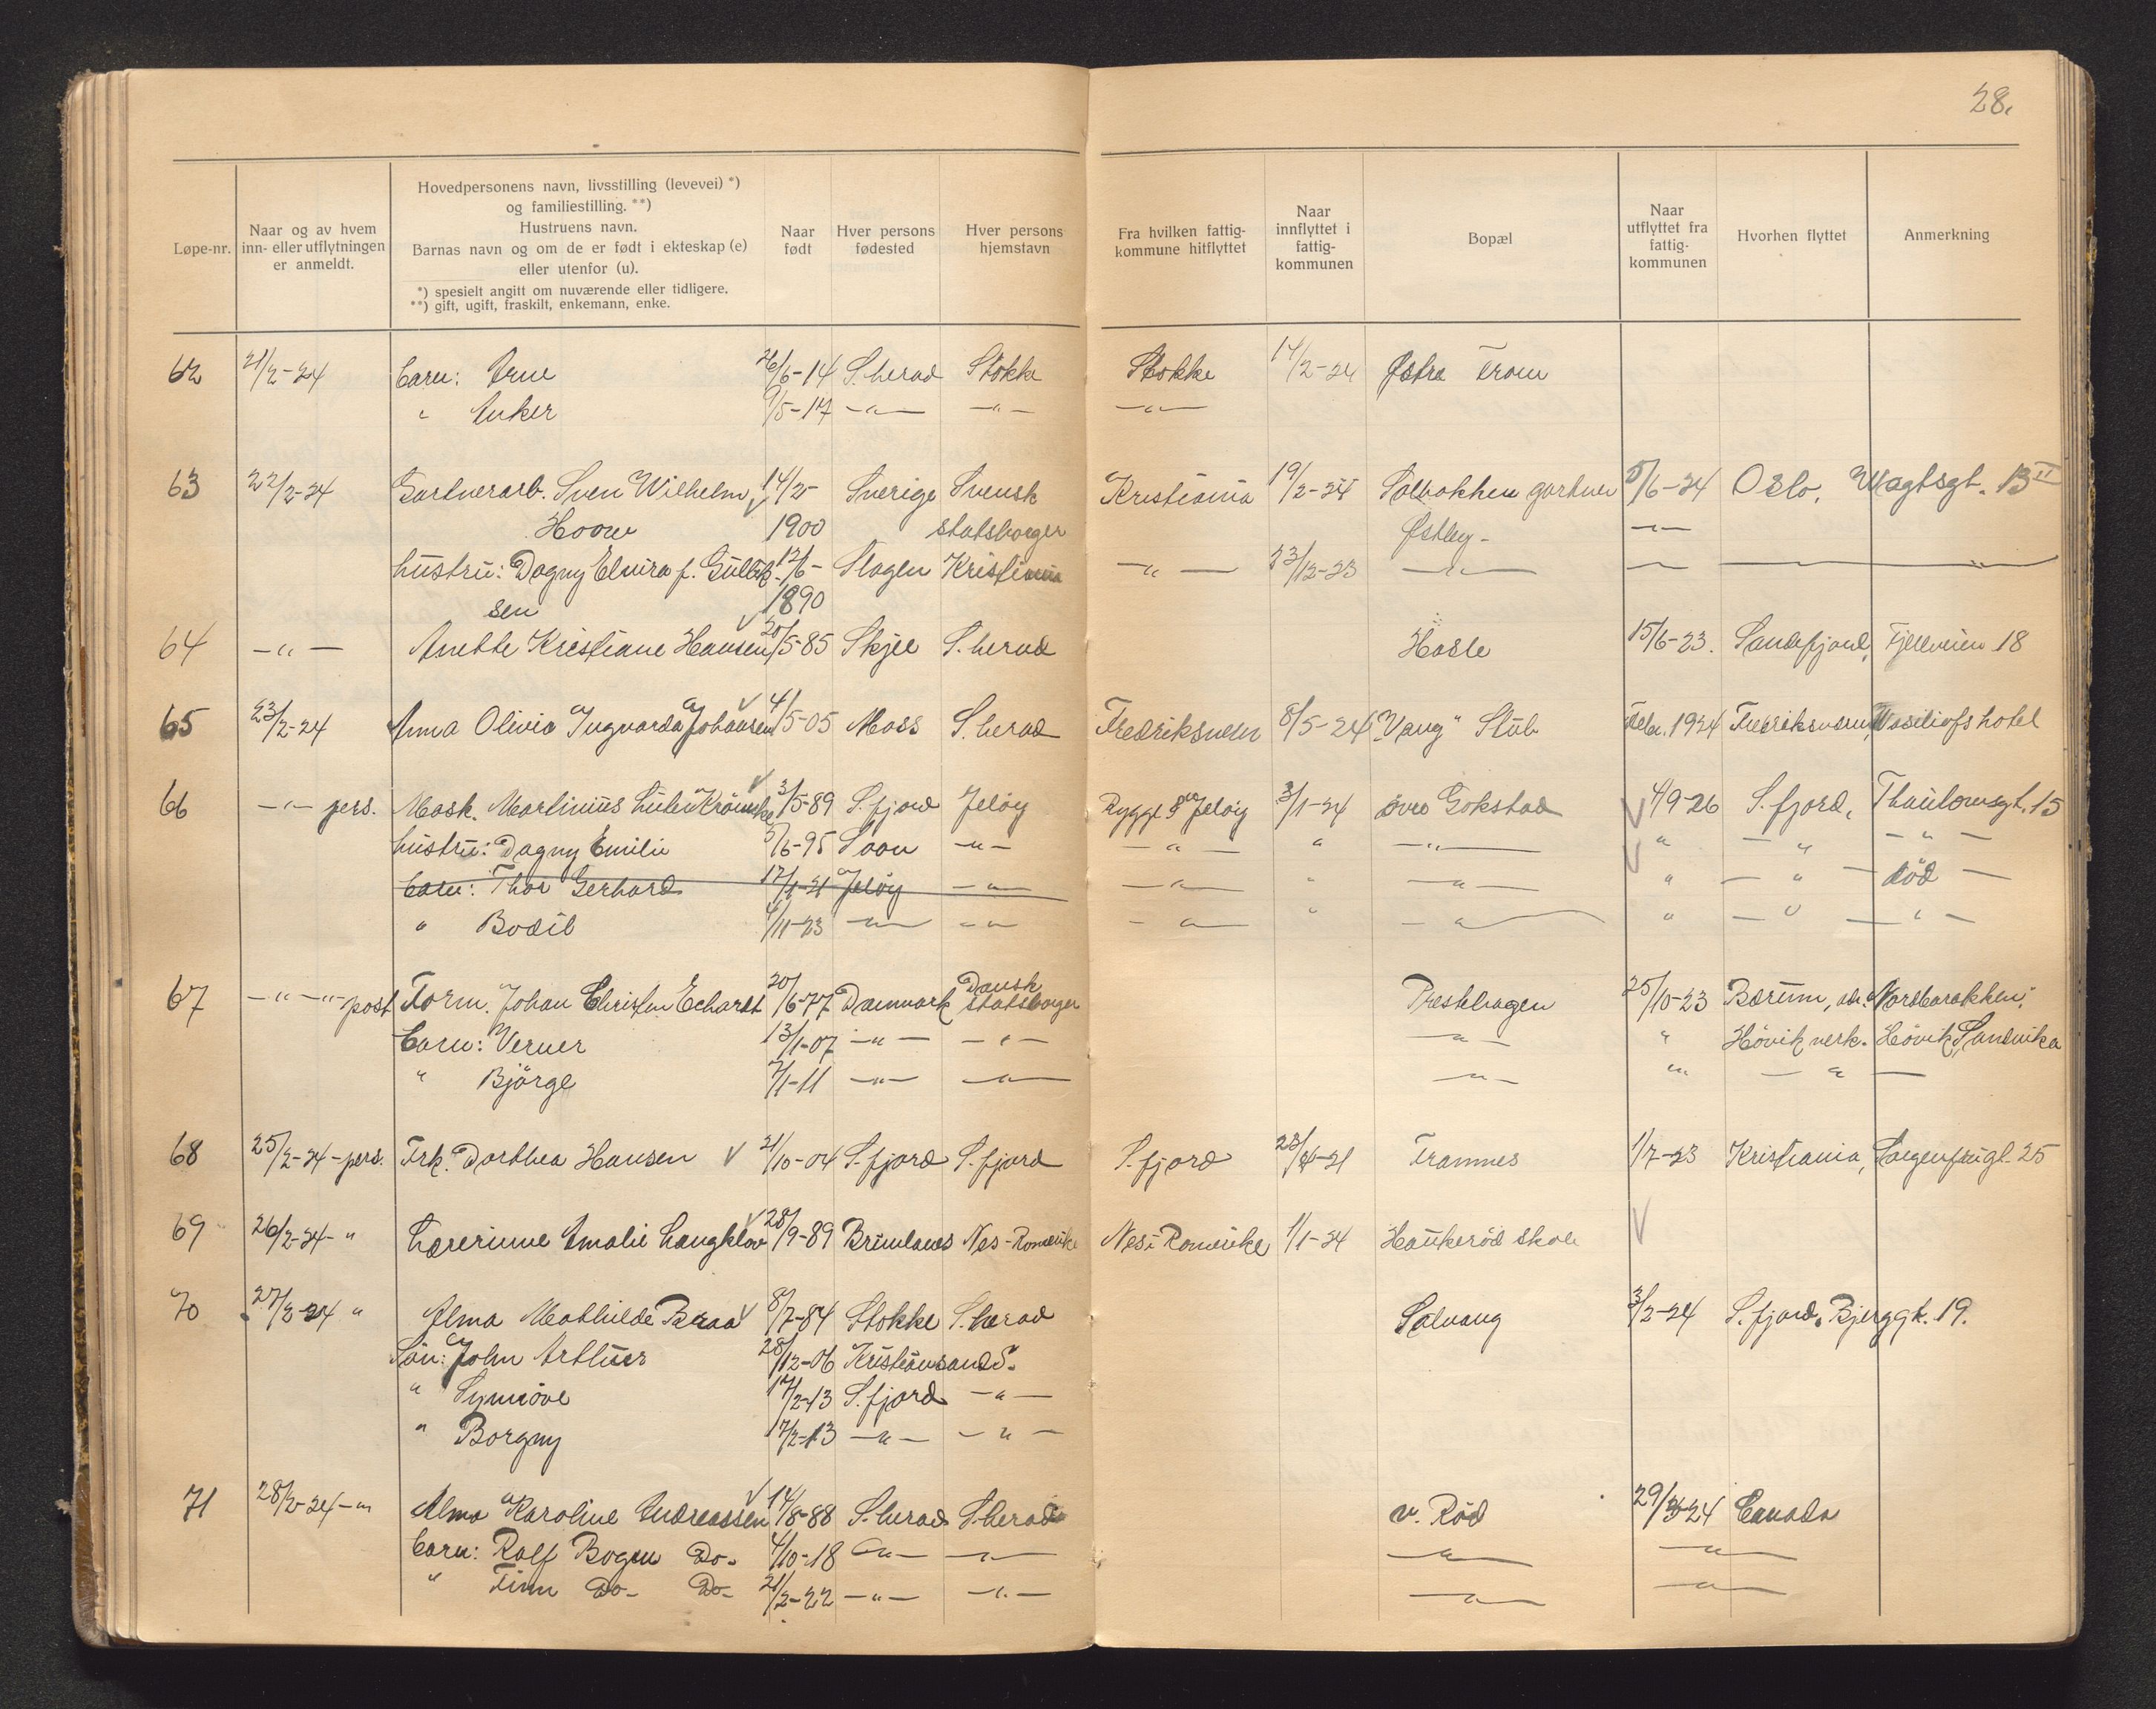 28.
Løpe-nr.
Naar og av hvem
inn- eller utflytningen
er anmeldt.
Hovedpersonens navn, livsstilling (levevei) *)
og familiestilling. **)
Hustruens navn.
Barnas navn og om de er født i ekteskap (e)
eller utenfor (u).
*) spesielt angitt om nuværende eller tidligere.
**) gift, ugift, fraskilt, enkemann, enke.
Naar
født
Hver persons
fødested
Hver persons
hjemstavn
Fra hvilken fattig-
kommune hitflyttet
Naar
innflyttet i
fattig-
kommunen
Bopæl
Naar
utflyttet fra
fattig-
kommunen
Hvorhen flyttet
Anmerkning
62 21/2-24 barn: Arne 26/6-14 S.herad Stokke Stokke 14/2-24 Østre Trom
" Anker 9/5-17 -"- -"- -"-
63 22/2-24 Gartnerarb. Sven Wilhelm 14/2- Sverige Svensk Kristiania 19/2-24 Solbakken gartner 5/6-24 Oslo, Wagtsgt. 13 II
1900 statsborger Østby -"-
hustru: Dagny Elvira f. Gullik- 12/6- Slagen Kristiania -"- 23/12-23 -"- -"- -"-
sen 1890
64 -"- Anette Kristiane Hansen 20/5-85 Skjee S.herad Hasle 15/6-23. Sandefjord, Fjellveien 18
65 23/2-24 Anna Olivia Ingvarda Johansen 4/5-05 Moss S.herad Fredriksvern 8/5-24 "Vang" Stub Febr. 1924 Fredriksvern, Wassiliofs hotel
66 -"- pers. Mask. Martinius 3/5-89 S.fjord Jeløy Rygge Jeløy 3/1-24 øvre Gokstad 4/9-26 S.fjord, Thaulowsgt. 15
hustru: Dagny Emilie 5/6-95 Soon -"- -"- " -"- " -"- -"-
barn: Thor Gerhard 17/1-21 Jeløy -"- -"- " -"- " -"- død -
" Bodil 4/11-23 -"- -"- -"- " -"- " -"- -"-
67 -"- -"- post Form. Johan Christen Echardt 20/6-77 Danmark Dansk statsborger Prestehagen 25/10-23 Bærum, adr. "Nordbarakken",
barn: Verner 13/1-07 -"- -"- -"- " Høvik verk. Høvik, Sandvika
" Bjørge 7/1-11 -"- -"- -"- " -"-
68 25/2-24 - pers. Frk. Dorthea Hansen 21/10-04 S.fjord S.fjord S.fjord 23/4-21 Framnes 1/7-23 Kristiania, Sorgenfrigt. 25
69 26/2-24 - " Lærerinne Amalie Langklov 28/9-89 Brunlanes Nes-Romerike Nes i Romerike 1/1-24 Haukerød skole
70 27/2-24 " Alma Mathilde Braa 8/7-84 Stokke S.herad Solvang 3/2-24 S.fjord, Bjerggt. 19.
Søn: John Arthur 28/12-06 Kristiansand S.
" Synnøve 17/2-13 S.fjord -"-
" Borgny 17/2-13 -"- -"-
71 28/2-24 - " Alma Karoline Andreassen 14/8-88 S.herad S.herad v. Rød 29/3-24 Canada
barn: Rolf Bogen Do- 4/10-18 -"- -"- -"- -"-
" Finn Do- Do- 21/2-22 -"- -"- -"- -"-